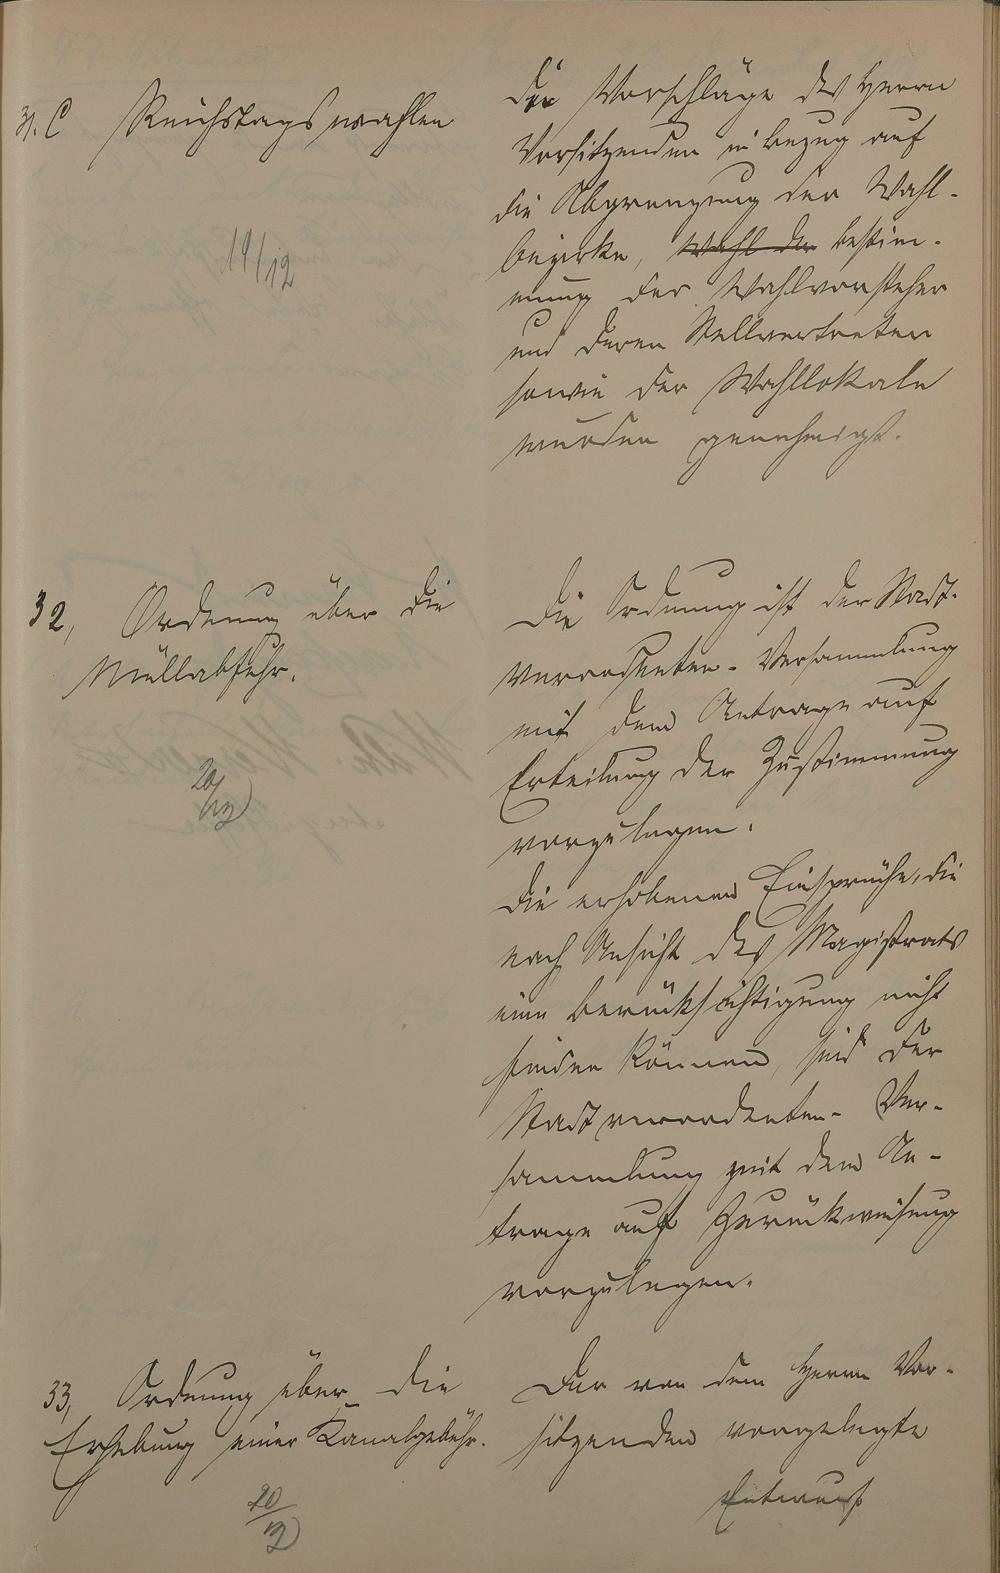 31. C Reichstagswahlen
19/12
Die Vorschläge des Herrn
Vorsitzenden in bezug auf
die Abgrenzung der Wahl-
bezirke, Wahl der bestim-
mung der Wahlvorsteher
und deren Stellvertreter
sowie der Wahllokale
wurden genehmigt.
32, Ordnung über die
Müllabfuhr.
20/12
Die Ordnung ist der Stadt-
verordneten-Versammlung
mit dem Antrage auf
Erteilung der Zustimmung
vorzulegen.
Die erhobenen Einsprüche, die
nach Ansicht des Magistrats
eine Berücksichtigung nicht
finden können, sind der
Stadtverordneten-Ver-
sammlung mit dem An-
trage auf Zurückweisung
vorzulegen.
33, Ordnung über die
Erhebung einer Kanalgebühr.
20/12
Der von dem Herrn Vor-
sitzenden vorgelegte
Entwurf